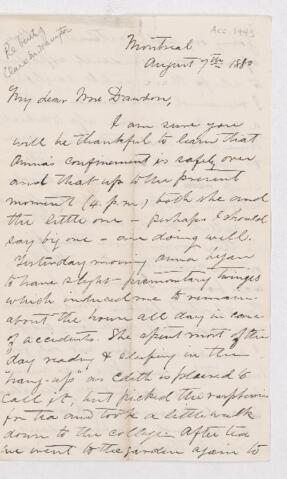 Re birth of
Clare M. Harrington
Acc. 1445
Montreal
August 7th 1880
My dear Mrs Dawson,
I am sure you
will be thankful to learn that
Anna's confinement is safely over
and that up to the present
moment (4 p.m.) both she and
the little one - perhaps I should
say big one - are doing well.
Yesterday morning Anna began
to have slight premonitory twinges
which induced me to remain
about the house all day in case
of accidents. She spent most of the
day reading & sleeping in the
"hang-up" as Edith is pleased to
call it, but picked the raspberries
for tea and took a little walk
down to the college. After tea
we went to the garden again to